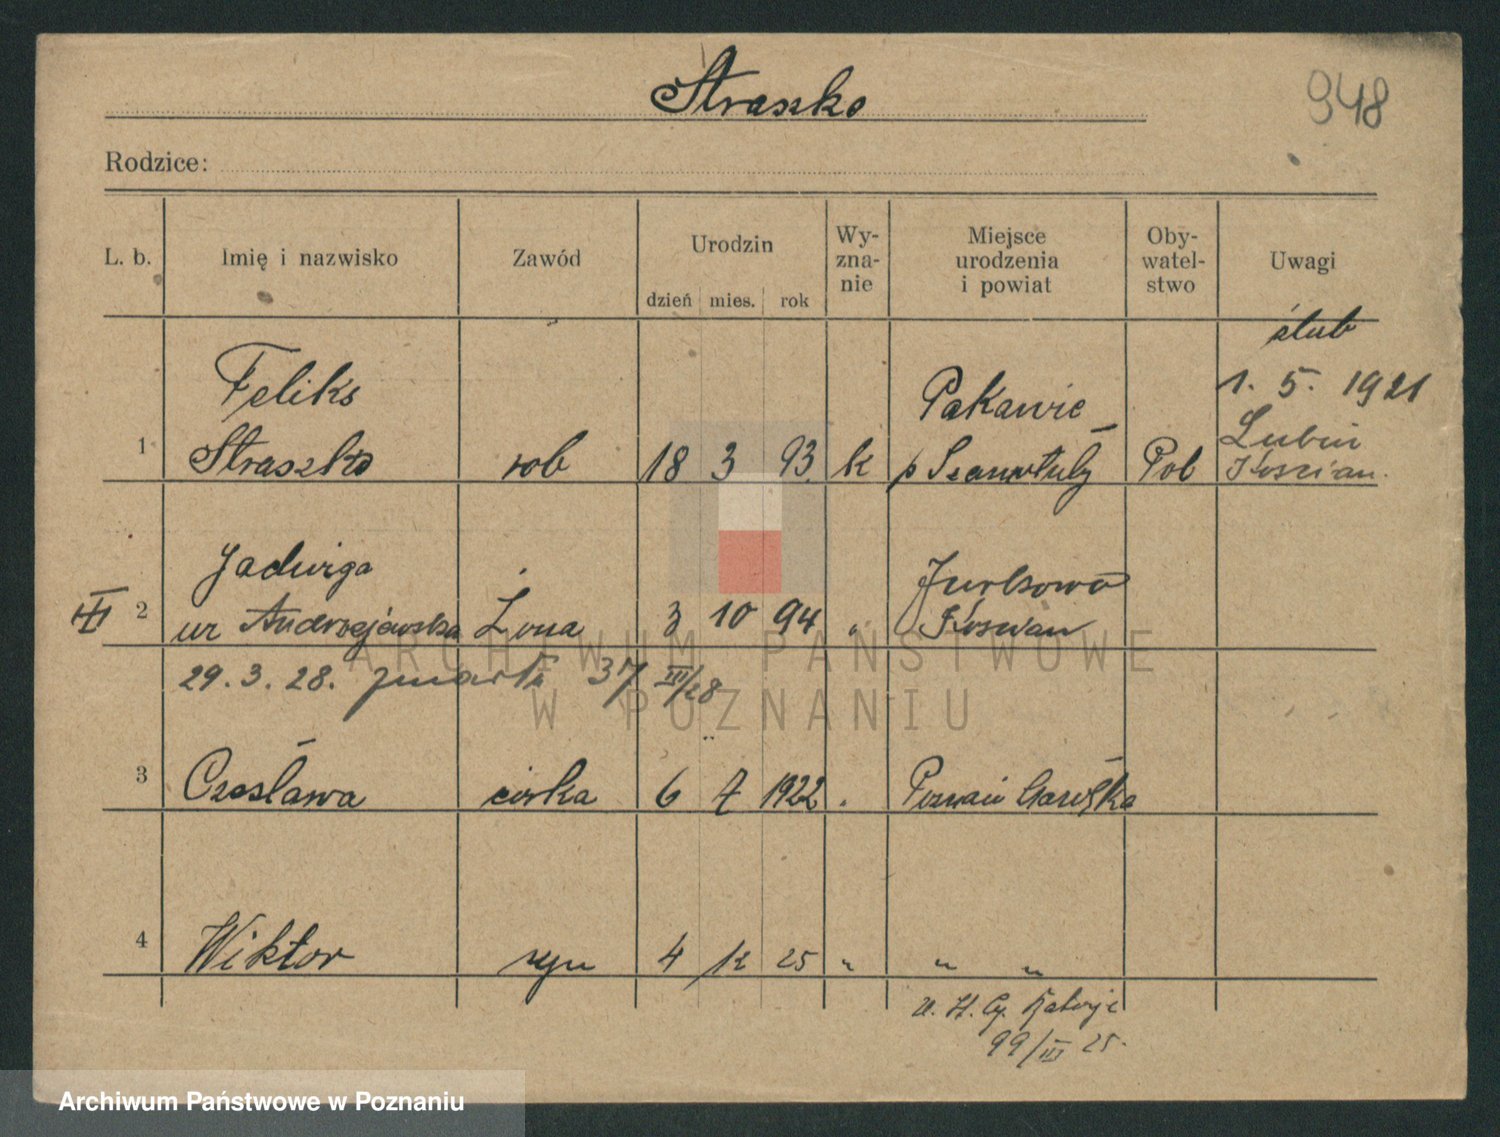 Straszko
948
Rodzice:
L. b. Imię i nazwisko Zawód Urodzin Wy- zna- nie Miejsce urodzenia i powiat Oby- watel- stwo Uwagi
dzień mies. rok
ślub
1. 5. 1921
Lubiń
Kościan.
Feliks Pakawie
1 Straszko rob 18 3 93. k p Szamotuły Pol
Jadwiga
III 2 ur Andrzejewska Żona 3 10 94 " Kościan
29. 3. 28. zmarła III/28
3 Czesława córka 6 7 1922 " Poznań
4 Wiktor syn 4 25 " " "
99/III 25.
ARCHIWUM PAŃSTWOWE
W POZNANIU
Archiwum Państwowe w Poznaniu